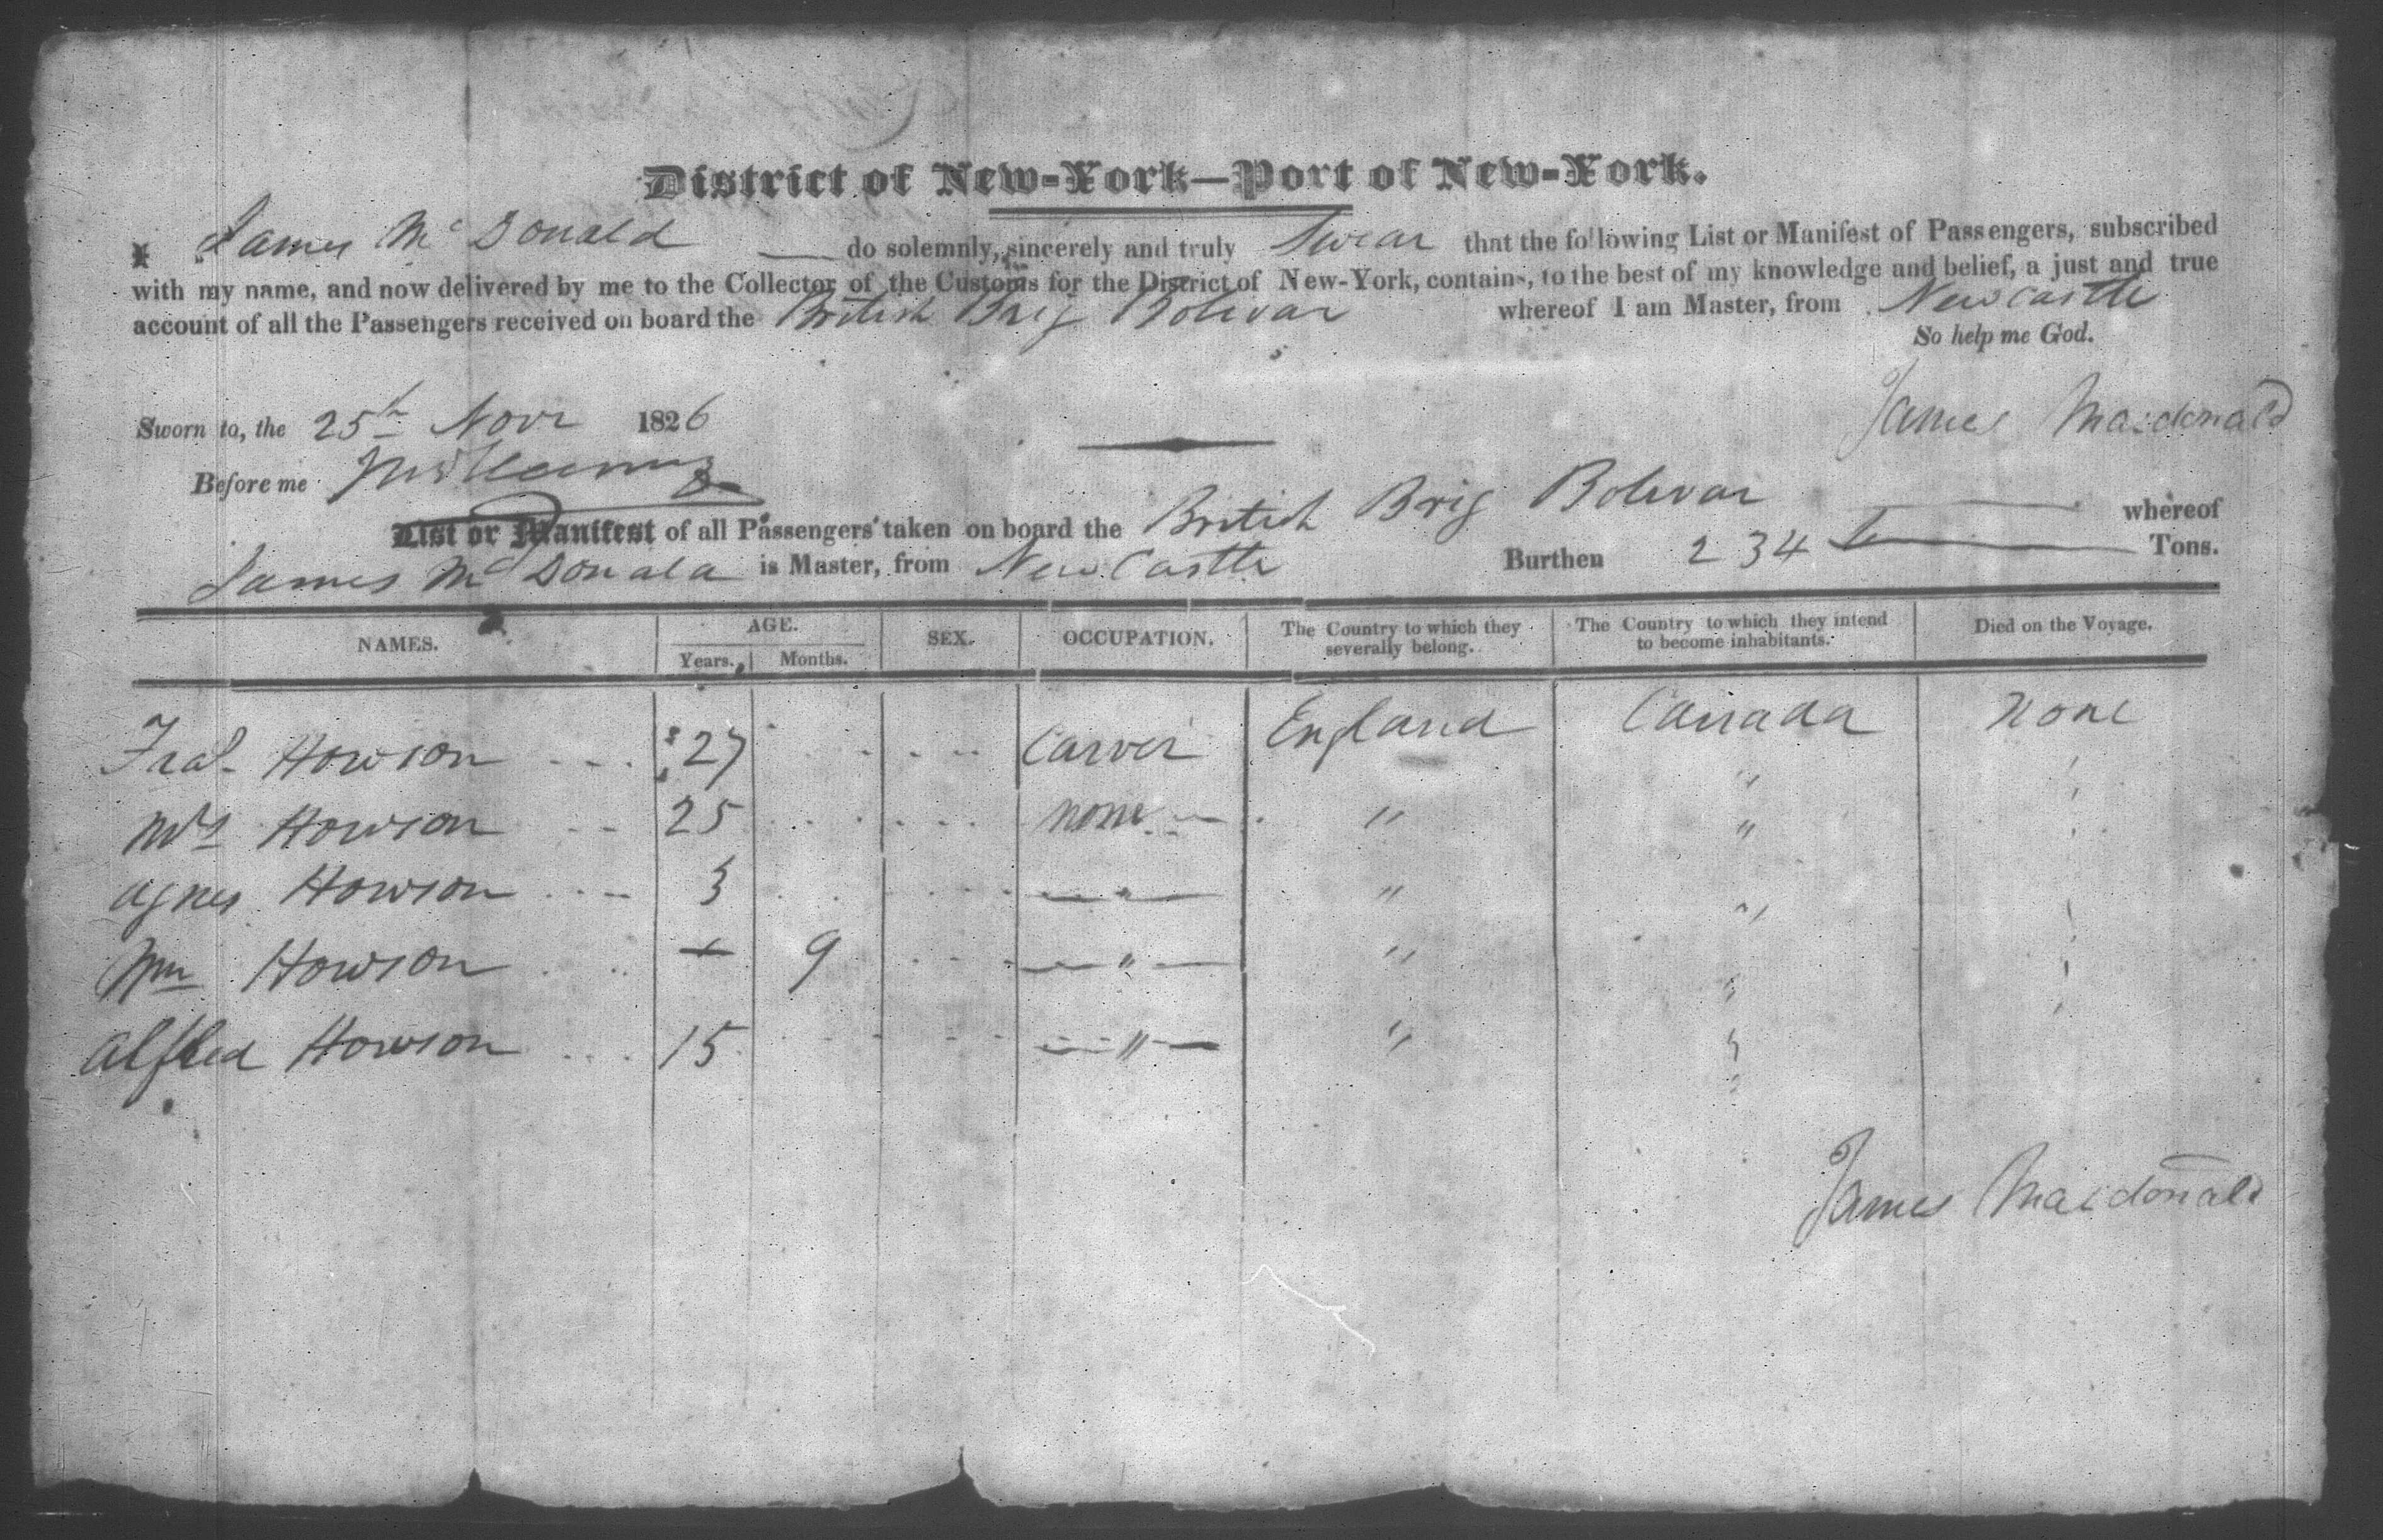 District of New-York—Port of New-York.
I James Mc Donald do solemnly, sincerely and truly Swear that the following List or Manifest of Passengers, subscribed
with my name, and now delivered by me to the Collector of the Customs for the District of New-York, contains, to the best of my knowledge and belief, a just and true
account of all the Passengers received on board the British Brig Bolivar whereof I am Master, from Newcastle
So help me God.
Sworn to, the 25th Novr 1826
James Macdonald
Before me
List or Manifest of all Passengers taken on board the British Brig Bolivar whereof
James Mc Donald is Master, from New Castle Burthen 234 Tons.
NAMES. AGE. SEX. OCCUPATION. The Country to which they severally belong. The Country to which they intend to become inhabitants. Died on the Voyage.
Years. Months.
Howson 27 Carver England Canada None
Mrs Howson 25 none " "
Agnes Howson 3 " " "
Wm Howson 9 " " "
Alfred Howson 15 " " "
James Macdonald